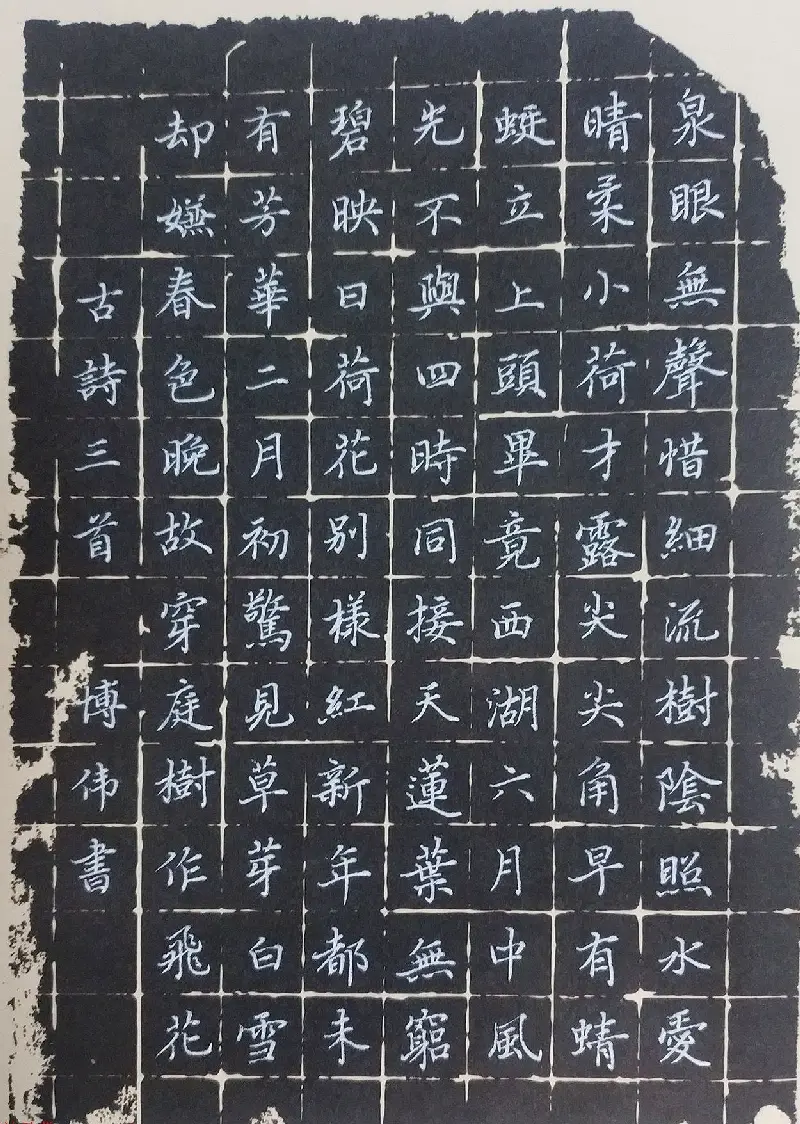 泉眼無聲惜細流樹陰照水愛
晴柔小荷才露尖尖角早有蜻
蜓立上頭畢竟西湖六月中風
光不與四時同接天蓮葉無窮
碧映日荷花別樣紅新年都未
有芳華二月初驚見草芽白雪
却嫌春色晚故穿庭樹作飛花
古詩三首 博伟書